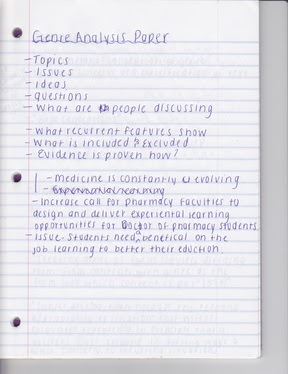 Genre Analysis Paper
- Topics
- Issues
- ideas
- questions
- What are people discussing
- What recurrent features show
- What is included & Excluded
- Evidence is proven how?
- Medicine is constantly evolving
- Increase call for pharmacy faculties to
design and deliver experiential learning
opportunities for Doctor of pharmacy students
- Issue- Students need benetical on the
job learning to better their eduction.